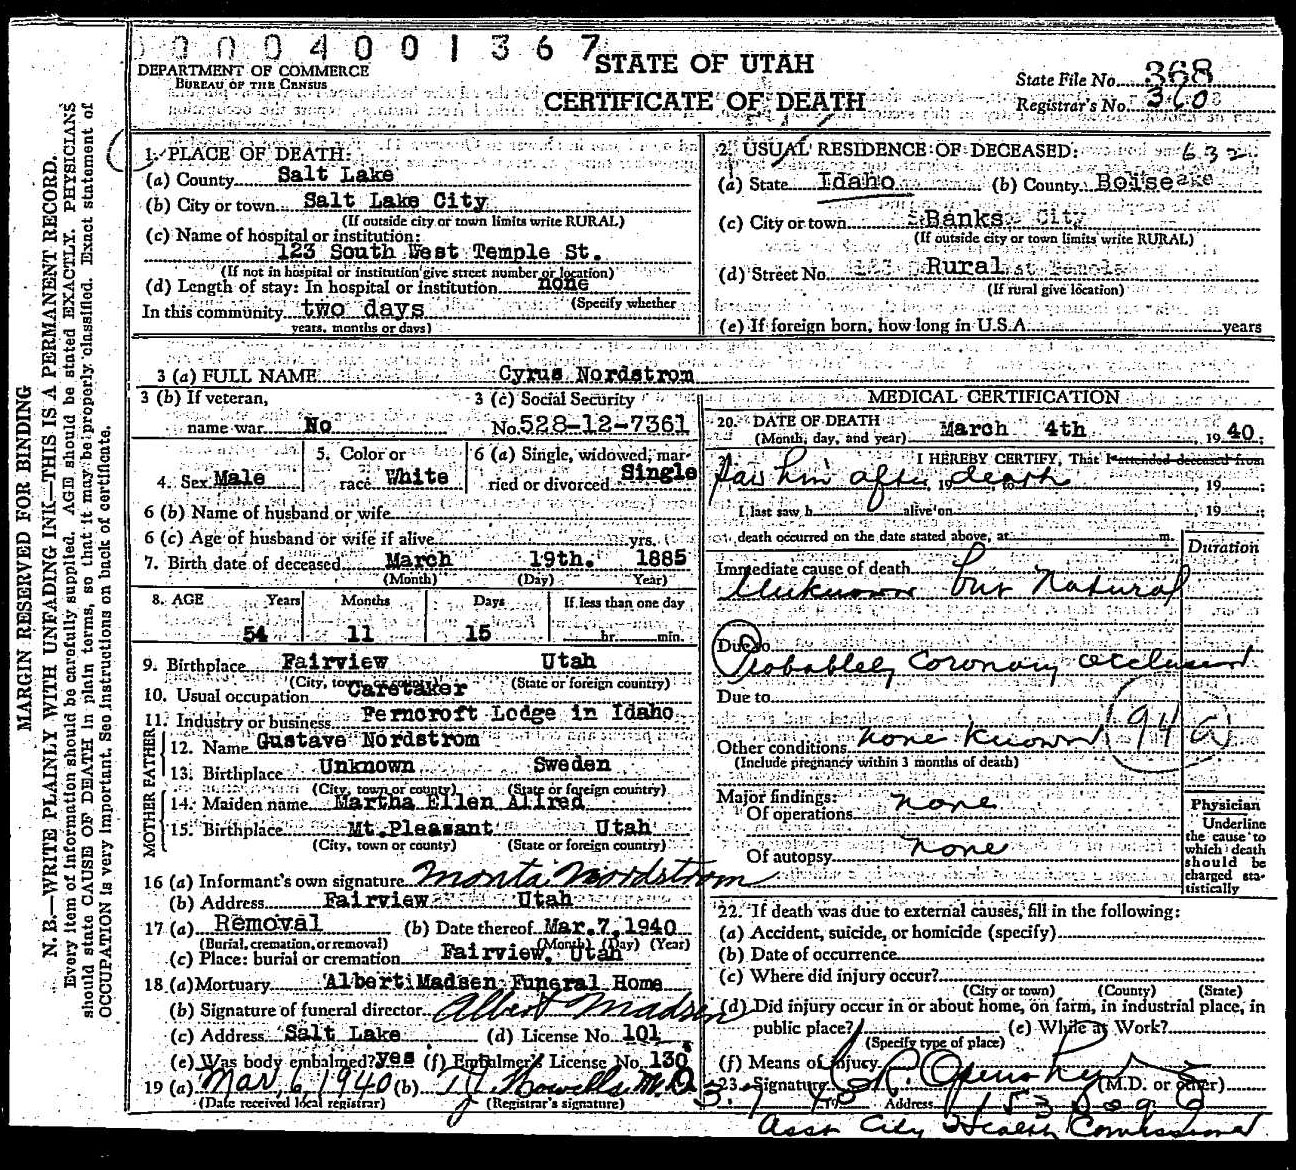 0004001367
STATE OF UTAH
DEPARTMENT OF COMMERCE
BUREAU OF THE CENSUS
CERTIFICATE OF DEATH
State File No. 368
Registrar's No. 360
MARGIN RESERVED FOR BINDING
N. B.—WRITE PLAINLY WITH UNFADING INK—THIS IS A PERMANENT RECORD.
Every item of information should be carefully supplied. AGE should be stated EXACTLY. PHYSICIANS
should state CAUSE OF DEATH in plain terms, so that it may be properly classified. Exact statement of
OCCUPATION is very important. See instructions on back of certificate.
1. PLACE OF DEATH:
(a) County Salt Lake
(b) City or town Salt Lake City
(If outside city or town limits write RURAL)
(c) Name of hospital or institution:
123 South West Temple St.
(If not in hospital or institution give street number or location)
(d) Length of stay: In hospital or institution none
(Specify whether
In this community two days
years, months or days)
2. USUAL RESIDENCE OF DECEASED: 632
(a) State Idaho (b) County Boise
(c) City or town Banks
(If outside city or town limits write RURAL)
(d) Street No. Rural
(If rural give location)
(e) If foreign born, how long in U.S.A. years
3 (a) FULL NAME Cyrus Nordstrom
3 (b) If veteran, name war No
3 (c) Social Security No. 528-12-7361
4. Sex Male
5. Color or race White
6 (a) Single, widowed, married or divorced Single
6 (b) Name of husband or wife
6 (c) Age of husband or wife if alive yrs.
7. Birth date of deceased March 19th. 1885
(Month) (Day) Year)
8. AGE Years Months Days If less than one day
54 11 15 hr. min.
9. Birthplace Fairview Utah
(City, town, or county) (State or foreign country)
10. Usual occupation Caretaker
11. Industry or business Perncroft Lodge in Idaho
FATHER
12. Name Gustave Nordstrom
13. Birthplace Unknown Sweden
(City, town or county) (State or foreign country)
MOTHER
14. Maiden name Martha Ellen Allred
15. Birthplace Mt. Pleasant Utah
(City, town or county) (State or foreign country)
16 (a) Informant's own signature Monta Nordstrom
(b) Address Fairview Utah
17 (a) Removal (b) Date thereof Mar. 7, 1940
(Burial, cremation, or removal) (Month) (Day) (Year)
(c) Place: burial or cremation Fairview, Utah
18 (a) Mortuary Albert Madsen Funeral Home
(b) Signature of funeral director Albert Madsen
(c) Address Salt Lake (d) License No. 101
(e) Was body embalmed? yes (f) Embalmer's License No. 130
19 (a) Mar 6, 1940 (b) Howells M.D.
(Date received local registrar) (Registrar's signature)
MEDICAL CERTIFICATION
20. DATE OF DEATH March 4th 1940;
(Month, day, and year)
I HEREBY CERTIFY, That I attended deceased from
Saw him after 19 death to 19
I last saw h alive on 19
death occurred on the date stated above, at m.
Duration
Immediate cause of death
Unknown but Natural
Due to
Probablely coronary occlusion
Due to
94 a
Other conditions none known
(Include pregnancy within 3 months of death)
Major findings:
Of operations none
Of autopsy none
Physician
Underline
the cause to
which death
should be
charged sta-
tistically
22. If death was due to external causes, fill in the following:
(a) Accident, suicide, or homicide (specify)
(b) Date of occurrence
(c) Where did injury occur?
(City or town) (County) (State)
(d) Did injury occur in or about home, on farm, in industrial place, in
public place? (e) While at Work?
(Specify type of place)
(f) Means of injury
23. Signature (M.D. or other)
3-7 40 Address 153
Asst City Health Commissioner